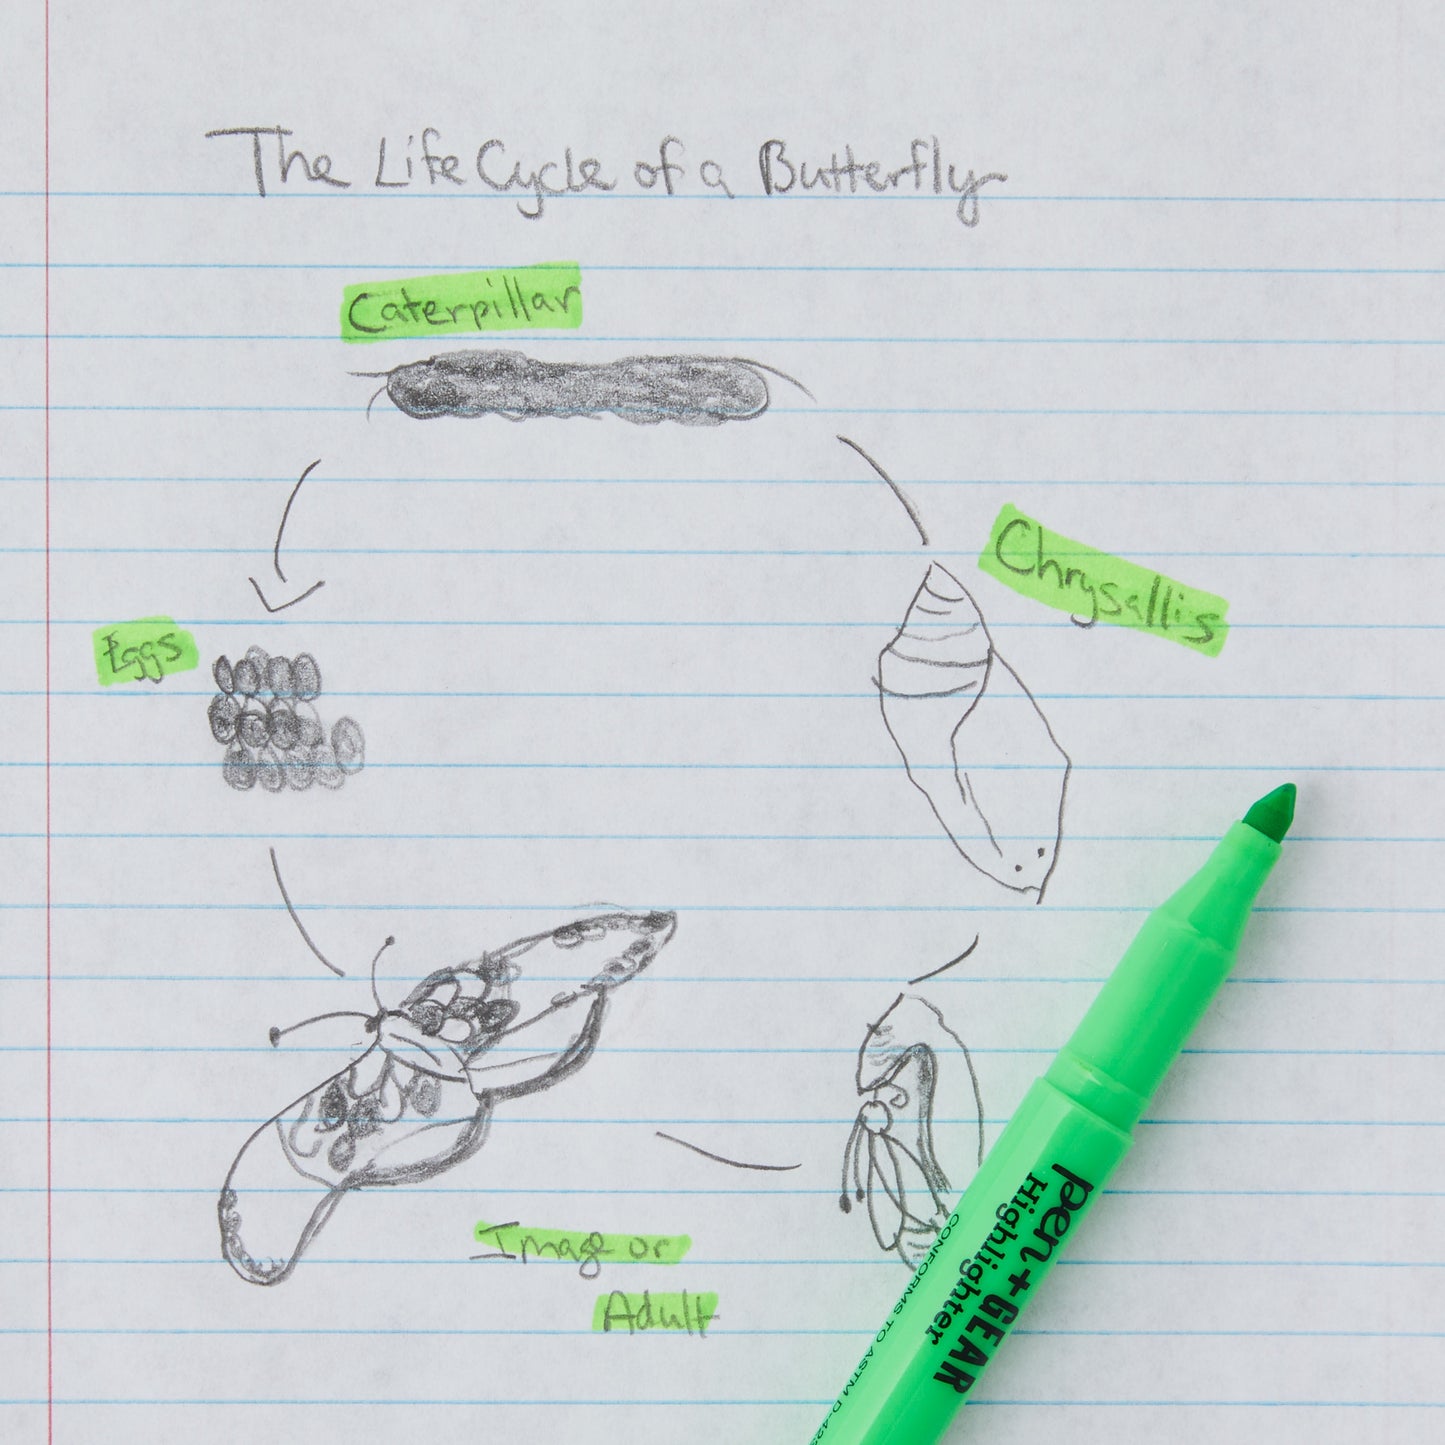 The Life Cycle of a Butterfly
Caterpillar
Chrysallis
Eggs
Image or
Adult
pen+GEAR
Highlighter
CONFORMS TO ASTM D-423